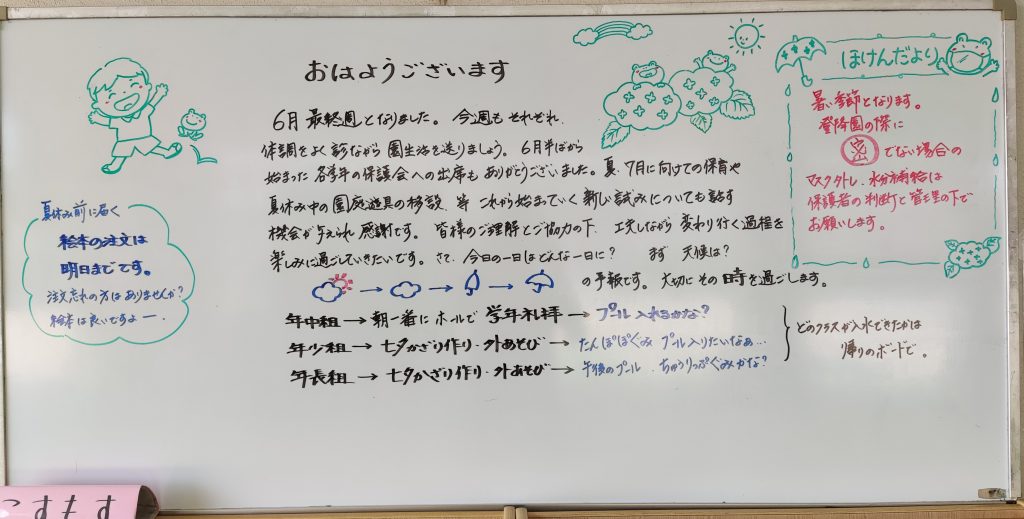 おはようございます
6月 最終週となりました。 今週も それぞれ
体調をよく診ながら 園生活を送りましょう。 6月半ばから
始まった 各学年の保護会への出席も ありがとうございました。夏、7月に向けての保育や
夏休み中の園庭遊具の移設 等 これから始まっていく 新しい試みについても 話す
機会が与えられ 感謝です。 皆様のご理解とご協力の下 工夫しながら 変わり行く過程を
楽しみに過ごしていきたいです。 さて、今日の一日はどんな一日に? まず 天候は?
の予報です。 大切に その 時を過ごします。
年中組 → 朝一番に ホールで 学年礼拝 → プール 入れるかな?
年少組 → 七夕かざり作り・外あそび → たんぽぽぐみ プール入りたいなぁ…
年長組 → 七夕かざり作り・外あそび → 午後のプール ちゅうりっぷぐみかな?
どのクラスが入水できたかは
帰りのボードで。
夏休み前に届く
絵本の注文は
明日までです。
注文忘れの方は ありませんか?
絵本は良いですよー。
ほけんだより
暑い季節となります。
登降園の際に
密 でない場合の
マスク外し、水分補給は
保護者の判断と管理の下で
お願いします。
こすもす